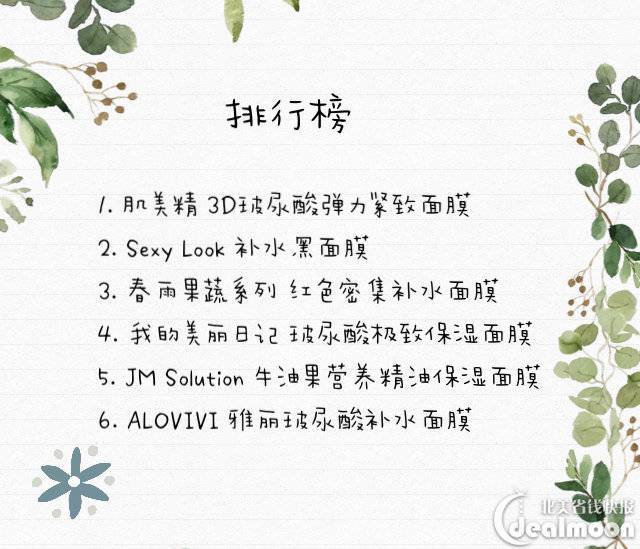 排行榜
1. 肌美精 3D玻尿酸弹力紧致面膜
2. Sexy Look 补水黑面膜
3. 春雨果蔬系列 红色密集补水面膜
4. 我的美丽日记 玻尿酸极致保湿面膜
5. JM Solution 牛油果营养精油保湿面膜
6. ALOVIVI 雅丽玻尿酸补水面膜
北美省钱快报
dealmoon